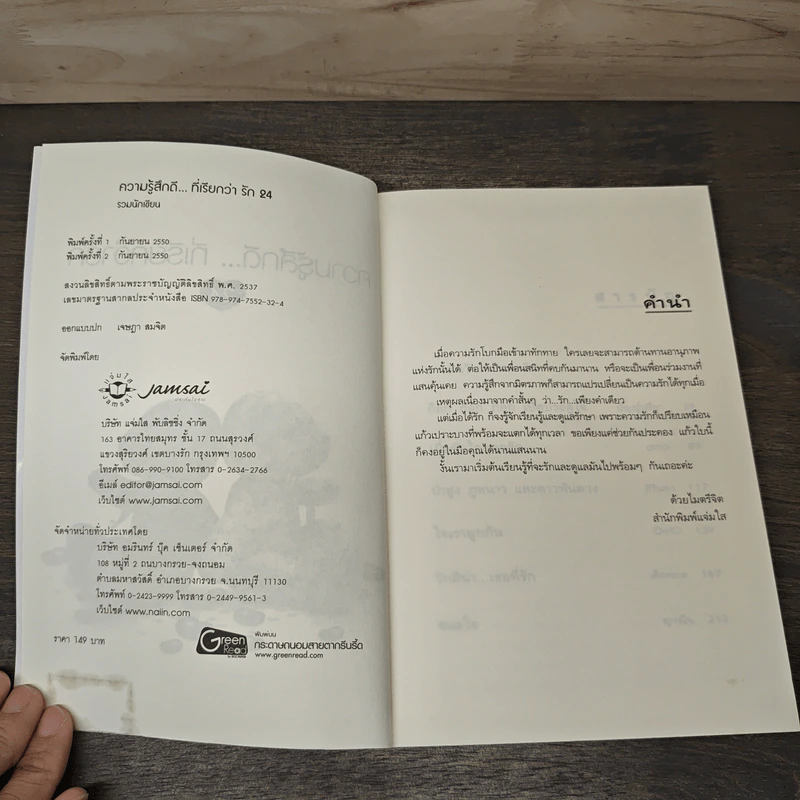 ความรู้สึกดี... ที่เรียกว่า รัก 24
รวมนักเขียน
พิมพ์ครั้งที่ 1 กันยายน 2550
พิมพ์ครั้งที่ 2 กันยายน 2550
สงวนลิขสิทธิ์ตามพระราชบัญญัติลิขสิทธิ์ พ.ศ. 2537
เลขมาตรฐานสากลประจำหนังสือ ISBN 978-974-7552-32-4
ออกแบบปก เจษฎา สมจิต
จัดพิมพ์โดย
แจ่มใส
Jamsai
jamsai
บริษัท แจ่มใส พับลิชชิ่ง จำกัด
163 อาคารไทยสมุทร ชั้น 17 ถนนสุรวงศ์
แขวงสุริยวงศ์ เขตบางรัก กรุงเทพฯ 10500
โทรศัพท์ 086-990-9100 โทรสาร 0-2634-2766
อีเมล์ editor@jamsai.com
เว็บไซต์ www.jamsai.com
จัดจำหน่ายทั่วประเทศโดย
บริษัท อมรินทร์ บุ๊ค เซ็นเตอร์ จำกัด
108 หมู่ที่ 2 ถนนบางกรวย-จงถนอม
ตำบลมหาสวัสดิ์ อำเภอบางกรวย จ.นนทบุรี 11130
โทรศัพท์ 0-2423-9999 โทรสาร 0-2449-9561-3
เว็บไซต์ www.naiin.com
ราคา 149 บาท
Green Read
พิมพ์บน
กระดาษถนอมสายตากรีนรี้ด
www.greenread.com
คำนำ
เมื่อความรักโบกมือเข้ามาทักทาย ใครเลยจะสามารถต้านทานอานุภาพ
แห่งรักนั้นได้ ต่อให้เป็นเพื่อนสนิทที่คบกันมานาน หรือจะเป็นเพื่อนร่วมงานที่
แสนคุ้นเคย ความรู้สึกจากมิตรภาพก็สามารถแปรเปลี่ยนเป็นความรักได้ทุกเมื่อ
เหตุผลเนื่องมาจากคำสั้นๆ ว่า...รัก...เพียงคำเดียว
แต่เมื่อได้รัก ก็จงรู้จักเรียนรู้และดูแลรักษา เพราะความรักก็เปรียบเหมือน
แก้วเปราะบางที่พร้อมจะแตกได้ทุกเวลา ขอเพียงแค่ช่วยกันประคอง แก้วใบนี้
ก็คงอยู่ในมือคุณได้นานแสนนาน
งั้นเรามาเริ่มต้นเรียนรู้ที่จะรักและดูแลมันไปพร้อมๆ กันเถอะค่ะ
ด้วยไมตรีจิต
สำนักพิมพ์แจ่มใส